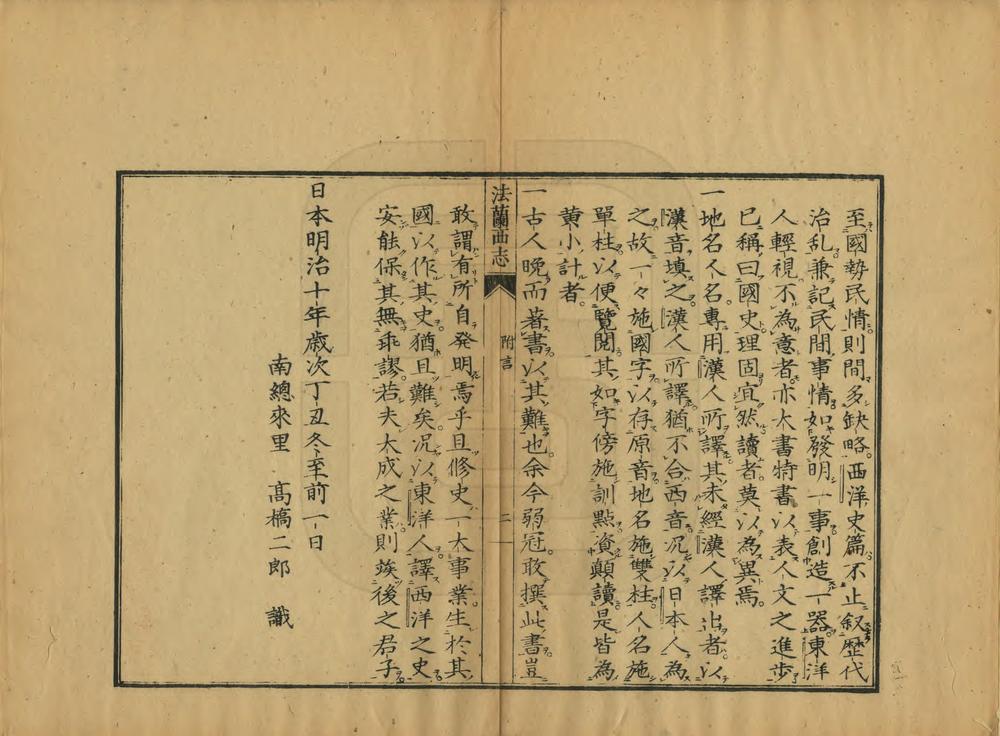 至國勢民情則間多缺略西洋史篇不止叙歷代
治乱兼記民間事情如發明一事創造一器東洋
人輕視不為意者亦大書特書以表人文之進步
已稱曰國史理固宜然讀者莫以為異焉
一地名人名專用漢人所譯其未經漢人譯出者以
漢音填之漢人所譯猶不合西音况以日本人為
之故一々施國字以存原音地名施雙柱人名施
單柱以便覽閱其如字傍施訓點資顛讀是皆為
黄小計者
一古人晚而著書以其難也余今弱冠敢撰此書豈
法蘭西志
附言
二
敢謂有所自発明焉乎且修史一大事業生於其
國以作其史猶且難矣况以東洋人譯西洋之史
安能保其無乖謬若夫大成之業則竢後之君子
日本明治十年歲次丁丑冬至前一日
南總來里 高橋二郎 識